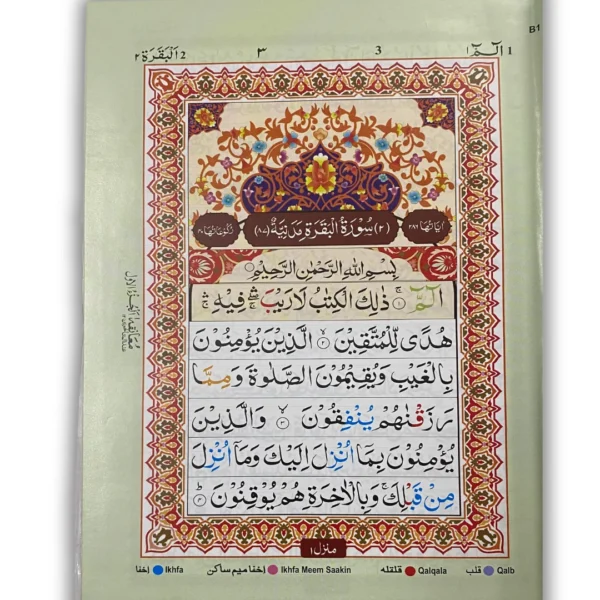 B1
2 اَلْبَقَرَة ٢	٣	3	الٓمّٓ ١ 1
اٰيَاتُهَا ٢٨٦ (٢) سُوْرَةُ الْبَقَرَةِ مَدَنِيَّةٌ (٨٧) رُكُوْعَاتُهَا ٤٠
بِسْمِ اللّٰهِ الرَّحْمٰنِ الرَّحِيْمِ
الٓمّٓ ۚ‏ ١ ذٰلِكَ الْكِتٰبُ لَا رَيْبَ ۛۖ ۚ فِيْهِ ۛۚ
هُدًى لِّلْمُتَّقِيْنَ ۙ‏ ٢ الَّذِيْنَ يُؤْمِنُوْنَ
بِالْغَيْبِ وَيُقِيْمُوْنَ الصَّلٰوةَ وَمِمَّا
رَزَقْنٰهُمْ يُنْفِقُوْنَ ۙ‏ ٣ وَالَّذِيْنَ
يُؤْمِنُوْنَ بِمَآ اُنْزِلَ اِلَيْكَ وَمَآ اُنْزِلَ
مِنْ قَبْلِكَ ۚ وَبِالْاٰخِرَةِ هُمْ يُوْقِنُوْنَ ؕ‏ ٤
منزل ١
معانقة الجزء الاول
إخفا Ikhfa إخفا ميم ساكن Ikhfa Meem Saakin قلقله Qalqala قلب Qalb